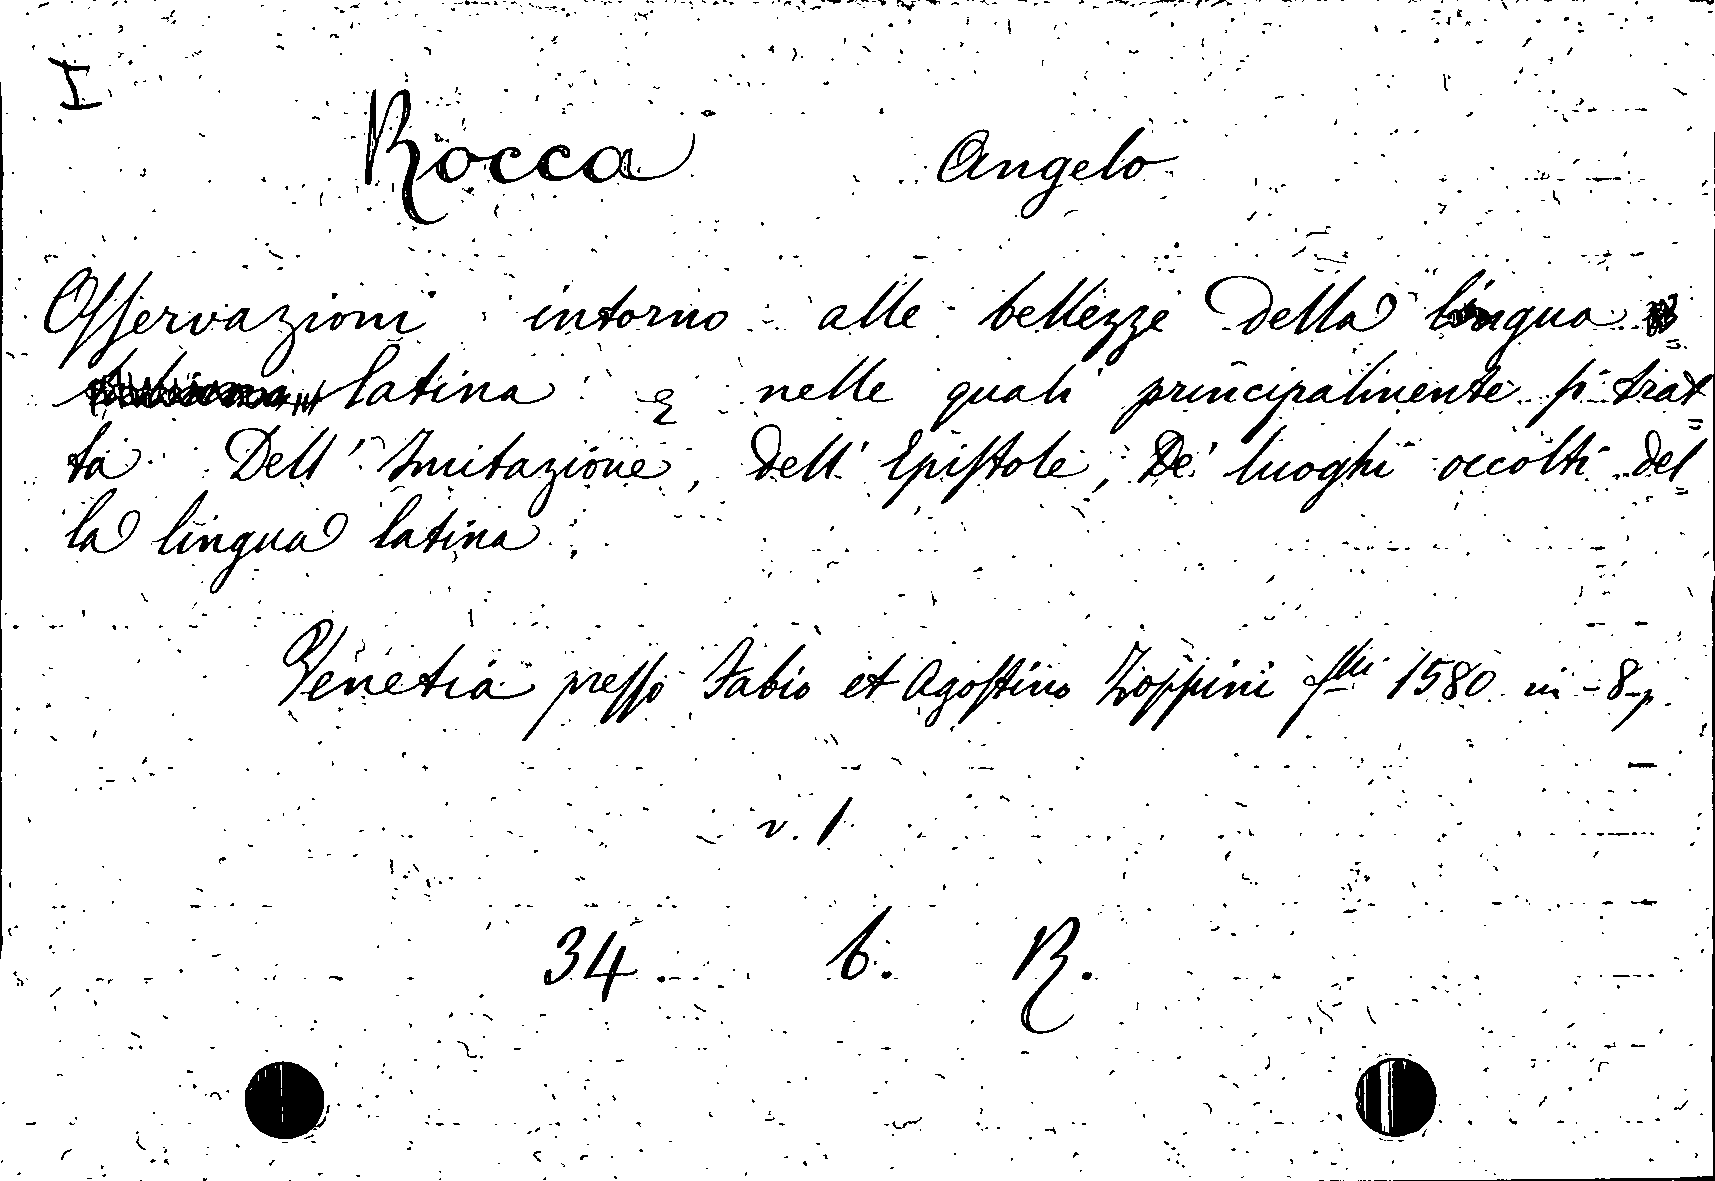 I
Rocca Angelo
Osservazioni intorno alle bellezze della lingua
latina nelle quali principalmente si trat=
ta Dell' Imitazione, dell' Epistole, De' luoghi occolti del=
la lingua latina.
Venetia presso Fabio et Agostino Zoppini flli 1580 in-8-p.
v. 1
34. b. R.